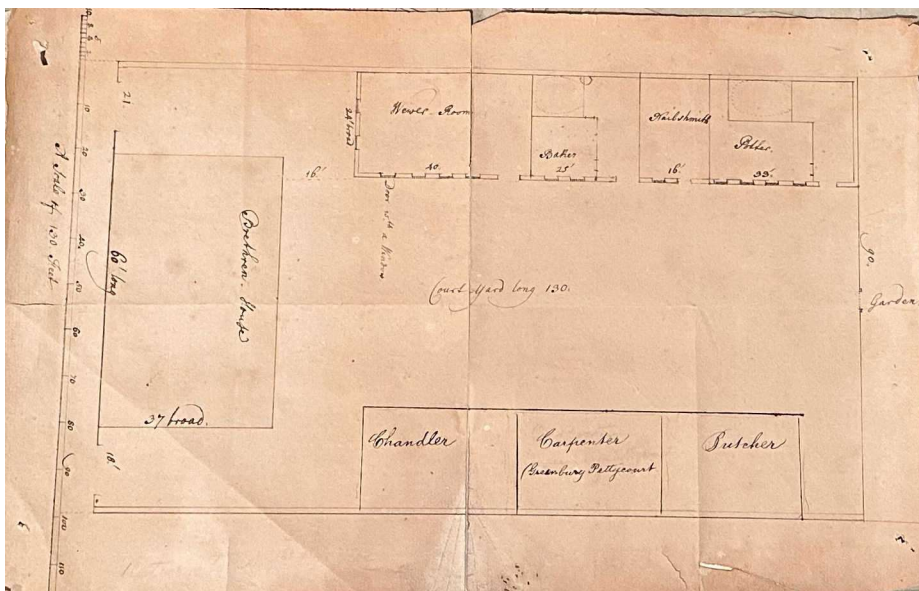 A Scale of 130 Feet
10
5
10
20
30
40
50
60
70
80
90
100
110
21.
60' long
Brethren-House
37 broad.
18'
16'
24' broad
Wever-Room
40.
Door with a Window
Baker
25'
Nailshmitt
16'
Potter.
33'
Court Yard long 130.
90.
Garden
Chandler
Carpenter
Greenbury Pettycourt
Butcher